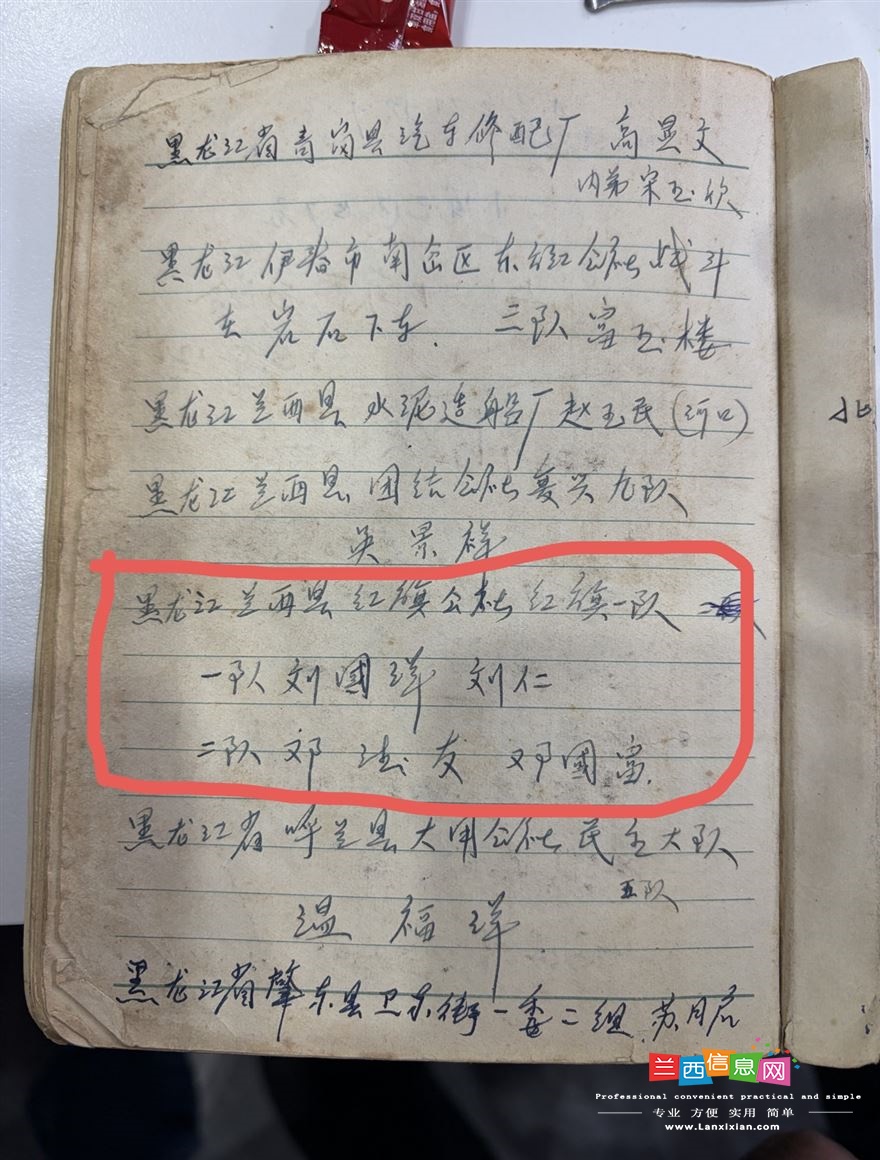 黑龙江省青岗县汽车修配厂 高显文
内弟 宋玉欣
黑龙江伊春市南岔区东红公社战斗
在岩石下车. 三队富玉楼
黑龙江兰西县水泥造船厂赵玉民(河口)
黑龙江兰西县团结公社复兴九队
吴景祥
黑龙江兰西县红旗公社红旗一队
一队刘國祥 刘仁
二队邓 友 邓國富.
黑龙江省呼兰县大用公社民主大队
五队
温福祥
黑龙江省肇东县卫东街一委二组 苏月
北
兰西信息网
Professional convenient practical and simple
专业 方便 实用 简单
www.Lanxixian.com